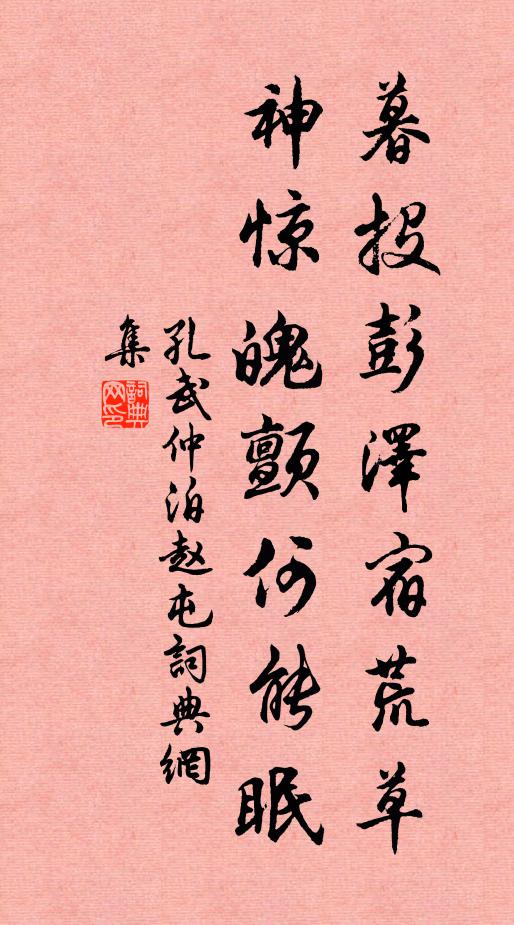 暮投彭澤宿荒草
神惊魄颤何能眠
孔武仲泊赵屯詞典網
集
詞典
网印